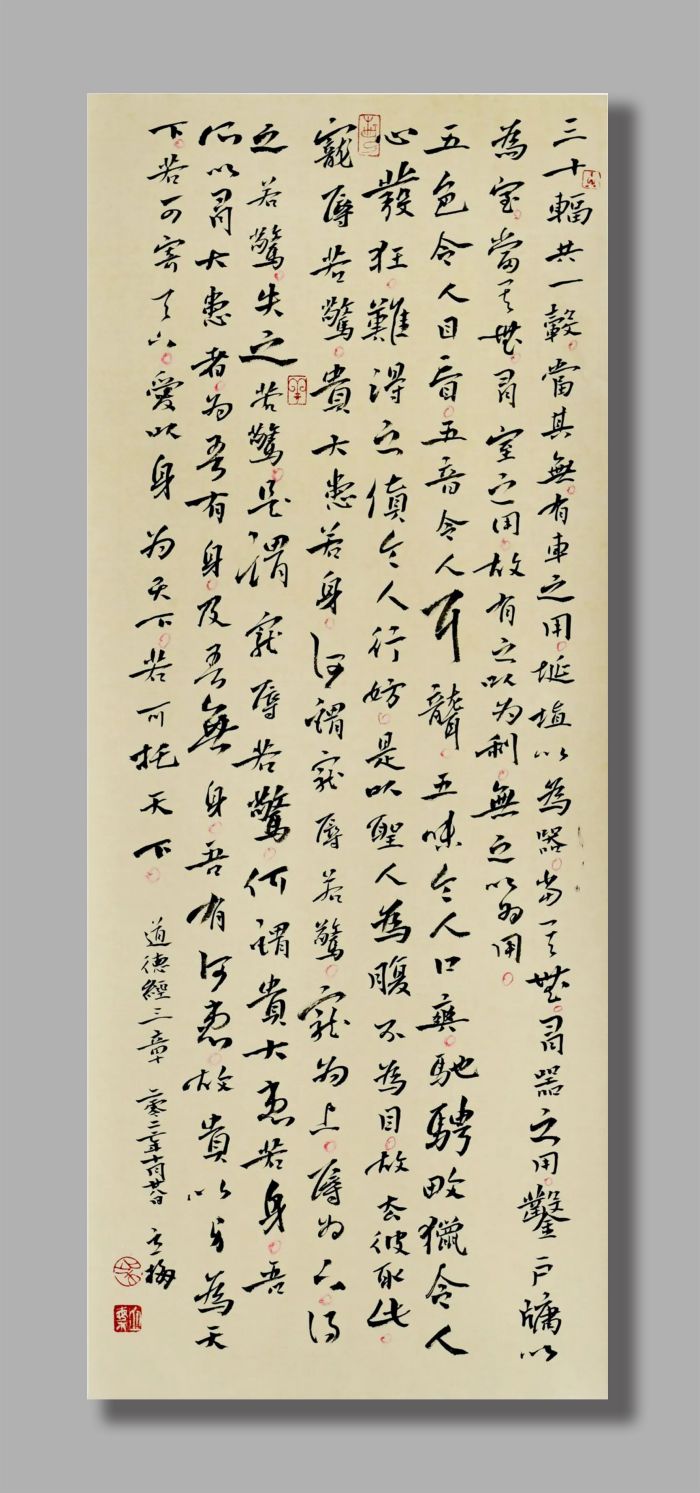 三十輻共一轂。當其無。有車之用。埏埴以為器。當其無。有器之用。鑿戶牖以
為室。當其無。有室之用。故有之以为利。無之以为用。
五色令人目盲。五音令人耳聾。五味令人口爽。馳騁畋獵令人
心發狂。難得之貨令人行妨。是以聖人為腹不為目。故去彼取此。
寵辱若驚。貴大患若身。何謂寵辱若驚。寵为上。辱为下。得
之若驚。失之若驚。是謂寵辱若驚。何謂貴大患若身。吾
所以有大患者。为吾有身。及吾無身。吾有何患。故貴以身為天
下。若可寄天下。愛以身为天下。若可托天下。
道德經三章